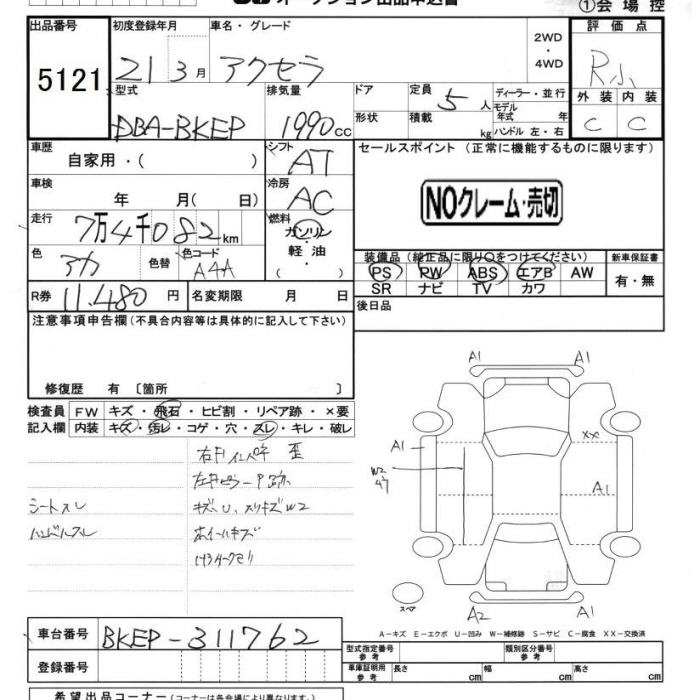 オークション出品申込書
①会場控
出品番号
5121
初度登録年月
21 3月
車名・グレード
アクセラ
2WD
・
4WD
評価点
R小
外装 内装
C C
型式
DBA-BKEP
排気量
1990cc
ドア
形状
定員
5人
積載
kg
ディーラー・並行
モデル年式 年
ハンドル 左・右
車歴
自家用・( )
シフト
AT
セールスポイント (正常に機能するものに限ります)
NOクレーム・売切
車検
年 月(日)
冷房
AC
走行
7万4千082km
燃料
ガソリン
・
軽油
( )
色
アカ
色替
色コード
A4A
装備品 (純正品に限り○をつけてください)
PS PW ABS エアB AW
SR ナビ TV カワ
新車保証書
有・無
R券
11,480円
名変期限 月 日
後日品
注意事項申告欄(不具合内容等は具体的に記入して下さい)
修復歴 有 〔箇所 〕
検査員
記入欄
FW キズ・飛石・ヒビ割・リペア跡・×要
内装 キズ・汚レ・コゲ・穴・スレ・キレ・破レ
右Fインパネ 歪
シートスレ
ハンドルスレ
キズ、U、スリキズW2
ホイールキズ
A1 A1
A1
XX
W2
A1
スペア
A2 A1
A-キズ E-エクボ U-凹み W-補修跡 S-サビ C-腐食 XX-交換済
車台番号
BKEP-311762
登録番号
型式指定番号
参考
類別区分番号
参考
車庫証明用
参考
長さ cm 幅 cm 高さ cm
希望出品コーナー(コーナーは各会場により異なります)